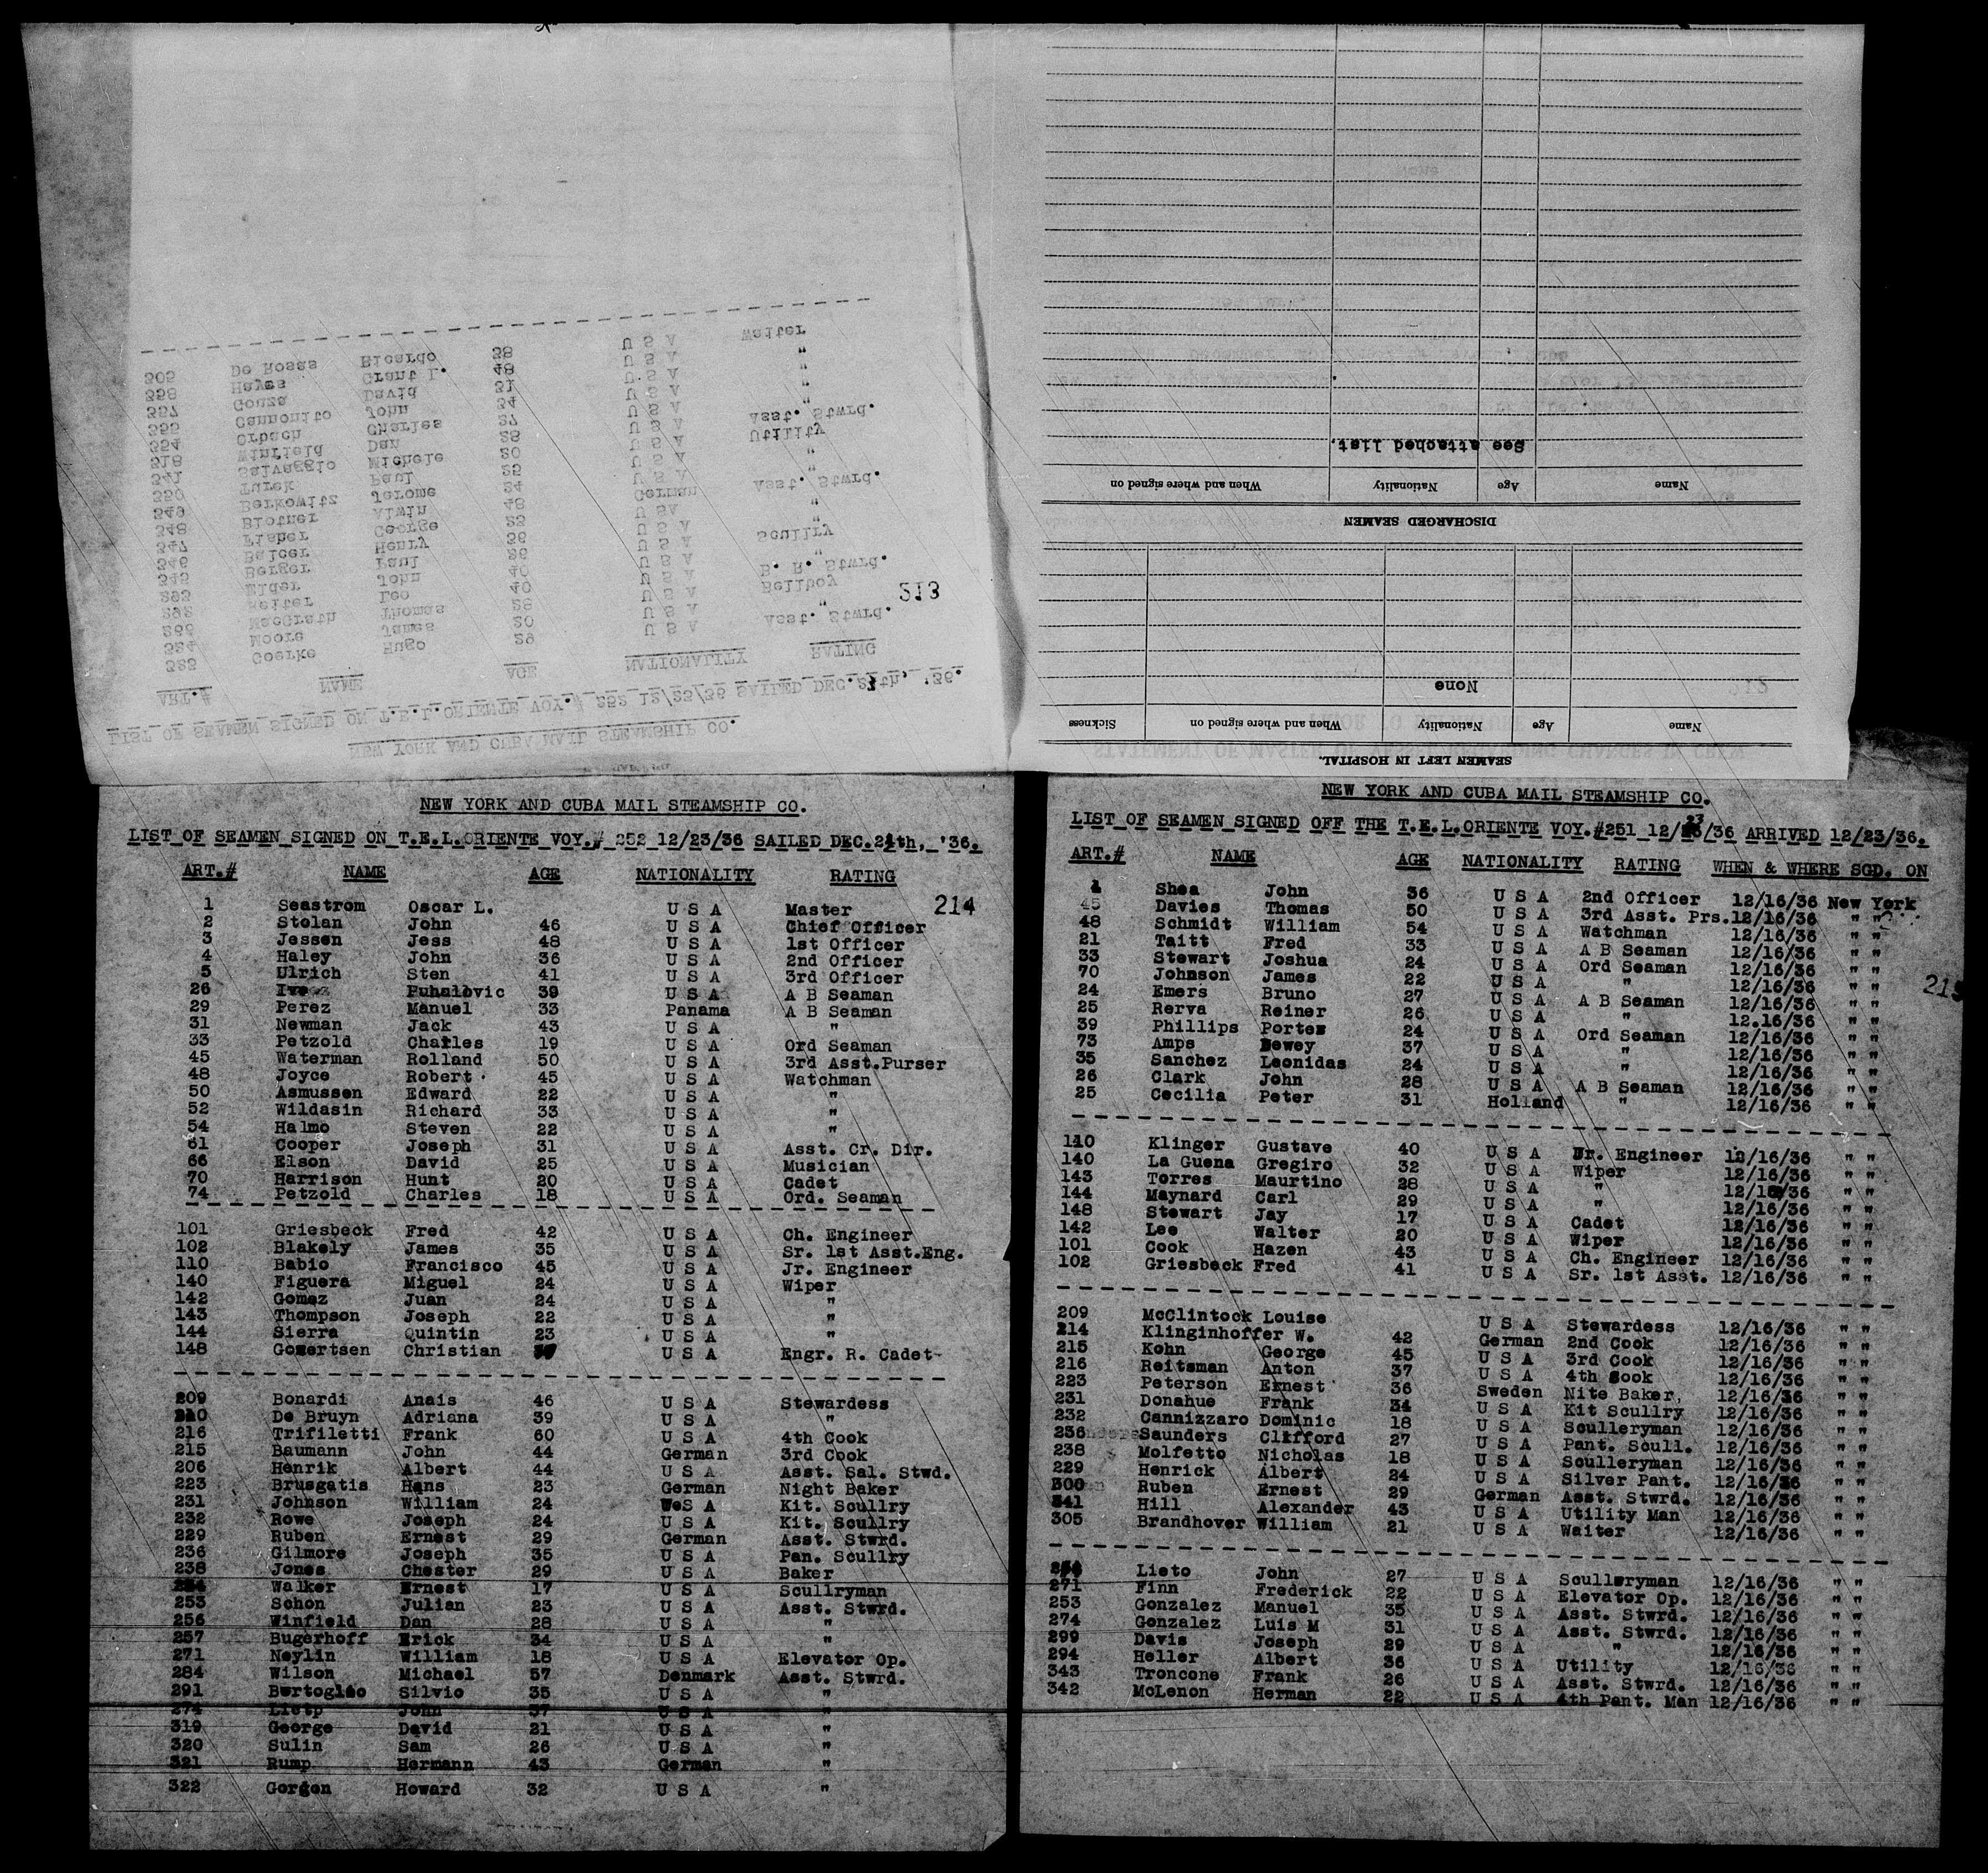 NEW YORK AND CUBA MAIL STEAMSHIP CO.
LIST OF SEAMEN SIGNED ON T.E.L.ORIENTE VOY.# 252 12/23/36 SAILED DEC.24th, '36.
ART.# NAME AGE NATIONALITY RATING
213
325 Goerke Hugo 29 U S A Asst. Stwrd.
324 Moore James 20 U S A "
266 MacGrath Thomas 26 U S A Bellboy
292 Reiter Leo 40 U S A B. R. Stwrd.
293 Elder John 40 U S A "
345 Berger Paul 26 U S A Scullry
346 Balcer Henry 36 U S A "
347 Fisher George 23 U S A "
348 Blotner Alwin 48 German Asst. Stwrd.
349 Berkowitz Jerome 24 U S A "
350 Turek Paul 25 U S A "
341 Salvaggio Michele 20 U S A Utility
318 Winfield Dan 28 U S A Asst. Stwrd.
354 Orbach Charles 27 U S A "
355 Cannonito John 34 U S A "
357 Gouza David 31 U S A "
358 Hayes Grant L. 48 U S A "
305 De Rosas Ricardo 38 U S A Waiter
SEAMEN LEFT IN HOSPITAL.
Name Age Nationality When and where signed on Sickness
None
DISCHARGED SEAMEN
Name Age Nationality When and where signed on
See attached list.
NEW YORK AND CUBA MAIL STEAMSHIP CO.
LIST OF SEAMEN SIGNED ON T.E.L.ORIENTE VOY.# 252 12/23/36 SAILED DEC.24th, '36.
ART.# NAME AGE NATIONALITY RATING
214
1 Seastrom Oscar L. U S A Master
2 Stolan John 46 U S A Chief Officer
3 Jessen Jess 48 U S A 1st Officer
4 Haley John 36 U S A 2nd Officer
5 Ulrich Sten 41 U S A 3rd Officer
26 Puhalovic 39 U S A A B Seaman
29 Perez Manuel 33 Panama A B Seaman
31 Newman Jack 43 U S A "
33 Petzold Charles 19 U S A Ord Seaman
45 Waterman Rolland 50 U S A 3rd Asst.Purser
48 Joyce Robert 45 U S A Watchman
50 Asmussen Edward 22 U S A "
52 Wildasin Richard 33 U S A "
54 Halmo Steven 22 U S A "
61 Cooper Joseph 31 U S A Asst. Cr. Dir.
66 Elson David 25 U S A Musician
70 Harrison Hunt 20 U S A Cadet
74 Petzold Charles 18 U S A Ord. Seaman
101 Griesbeck Fred 42 U S A Ch. Engineer
102 Blakely James 35 U S A Sr. 1st Asst.Eng.
110 Babio Francisco 45 U S A Jr. Engineer
140 Figuera Miguel 24 U S A Wiper
142 Gomez Juan 24 U S A "
143 Thompson Joseph 22 U S A "
144 Sierra Quintin 23 U S A "
148 Gowertsen Christian U S A Engr. R. Cadet
209 Bonardi Anais 46 U S A Stewardess
210 De Bruyn Adriana 39 U S A "
216 Trifiletti Frank 60 U S A 4th Cook
215 Baumann John 44 German 3rd Cook
206 Henrik Albert 44 U S A Asst. Sal. Stwd.
223 Brusgatis Hans 23 German Night Baker
231 Johnson William 24 U S A Kit. Scullry
232 Rowe Joseph 24 U S A Kit. Scullry
229 Ruben Ernest 29 German Asst. Stwrd.
236 Gilmore Joseph 35 U S A Pan. Scullry
238 Jones Chester 29 U S A Baker
Walker Ernest 17 U S A Scullryman
253 Schon Julian 23 U S A Asst. Stwrd.
256 Winfield Dan 28 U S A "
257 Bugerhoff Erick 34 U S A "
271 Neylin William 18 U S A Elevator Op.
284 Wilson Michael 57 Denmark Asst. Stwrd.
291 Bertoglio Silvio 35 U S A "
274 Lietp John 37 U S A "
319 George David 21 U S A "
320 Sulin Sam 26 U S A "
321 Rump Hermann 43 German "
322 Gordon Howard 32 U S A "
NEW YORK AND CUBA MAIL STEAMSHIP CO.
LIST OF SEAMEN SIGNED OFF THE T.E.L.ORIENTE VOY.#251 12/23/36 ARRIVED 12/23/36.
ART.# NAME AGE NATIONALITY RATING WHEN & WHERE SGD. ON
215
1 Shea John 36 U S A 2nd Officer 12/16/36 New York
45 Davies Thomas 50 U S A 3rd Asst. Prs. 12/16/36 " "
48 Schmidt William 54 U S A Watchman 12/16/36 " "
21 Taitt Fred 33 U S A A B Seaman 12/16/36 " "
33 Stewart Joshua 24 U S A Ord Seaman 12/16/36 " "
70 Johnson James 22 U S A " 12/16/36 " "
24 Emers Bruno 27 U S A A B Seaman 12/16/36 " "
25 Rerva Reiner 26 U S A " 12.16/36 " "
39 Phillips Porter 24 U S A Ord Seaman 12/16/36 " "
73 Amps Dewey 37 U S A " 12/16/36 " "
35 Sanchez Leonidas 24 U S A " 12/16/36 " "
26 Clark John 28 U S A A B Seaman 12/16/36 " "
25 Cecilia Peter 31 Holland " 12/16/36 " "
110 Klinger Gustave 40 U S A Jr. Engineer 12/16/36 " "
140 La Guena Gregiro 32 U S A Wiper 12/16/36 " "
143 Torres Maurtino 28 U S A " 12/16/36 " "
144 Maynard Carl 29 U S A " 12/16/36 " "
148 Stewart Jay 17 U S A Cadet 12/16/36 " "
142 Lee Walter 20 U S A Wiper 12/16/36 " "
101 Cook Hazen 43 U S A Ch. Engineer 12/16/36 " "
102 Griesbeck Fred 41 U S A Sr. 1st Asst. 12/16/36 " "
209 McClintock Louise U S A Stewardess 12/16/36 " "
214 Klinginhoffer W. 42 German 2nd Cook 12/16/36 " "
215 Kohn George 45 U S A 3rd Cook 12/16/36 " "
216 Reitsman Anton 37 U S A 4th Cook 12/16/36 " "
223 Peterson Ernest 36 Sweden Nite Baker, 12/16/36 " "
231 Donahue Frank 34 U S A Kit Scullry 12/16/36 " "
232 Cannizzaro Dominic 18 U S A Sculleryman 12/16/36 " "
236 Saunders Clifford 27 U S A Pant. Scull. 12/16/36 " "
238 Molfetto Nicholas 18 U S A Sculleryman 12/16/36 " "
229 Henrick Albert 24 U S A Silver Pant. 12/16/36 " "
300 Ruben Ernest 29 German Asst. Stwrd. 12/16/36 " "
341 Hill Alexander 43 U S A Utility Man 12/16/36 " "
305 Brandhover William 21 U S A Waiter 12/16/36 " "
Lieto John 27 U S A Sculleryman 12/16/36 " "
271 Finn Frederick 22 U S A Elevator Op. 12/16/36 " "
253 Gonzalez Manuel 35 U S A Asst. Stwrd. 12/16/36 " "
274 Gonzalez Luis M 31 U S A Asst. Stwrd. 12/16/36 " "
299 Davis Joseph 29 U S A " 12/16/36 " "
294 Heller Albert 36 U S A Utility 12/16/36 " "
343 Troncone Frank 26 U S A Asst. Stwrd. 12/16/36 " "
342 McLenon Herman 22 U S A 4th Pant. Man 12/16/36 " "